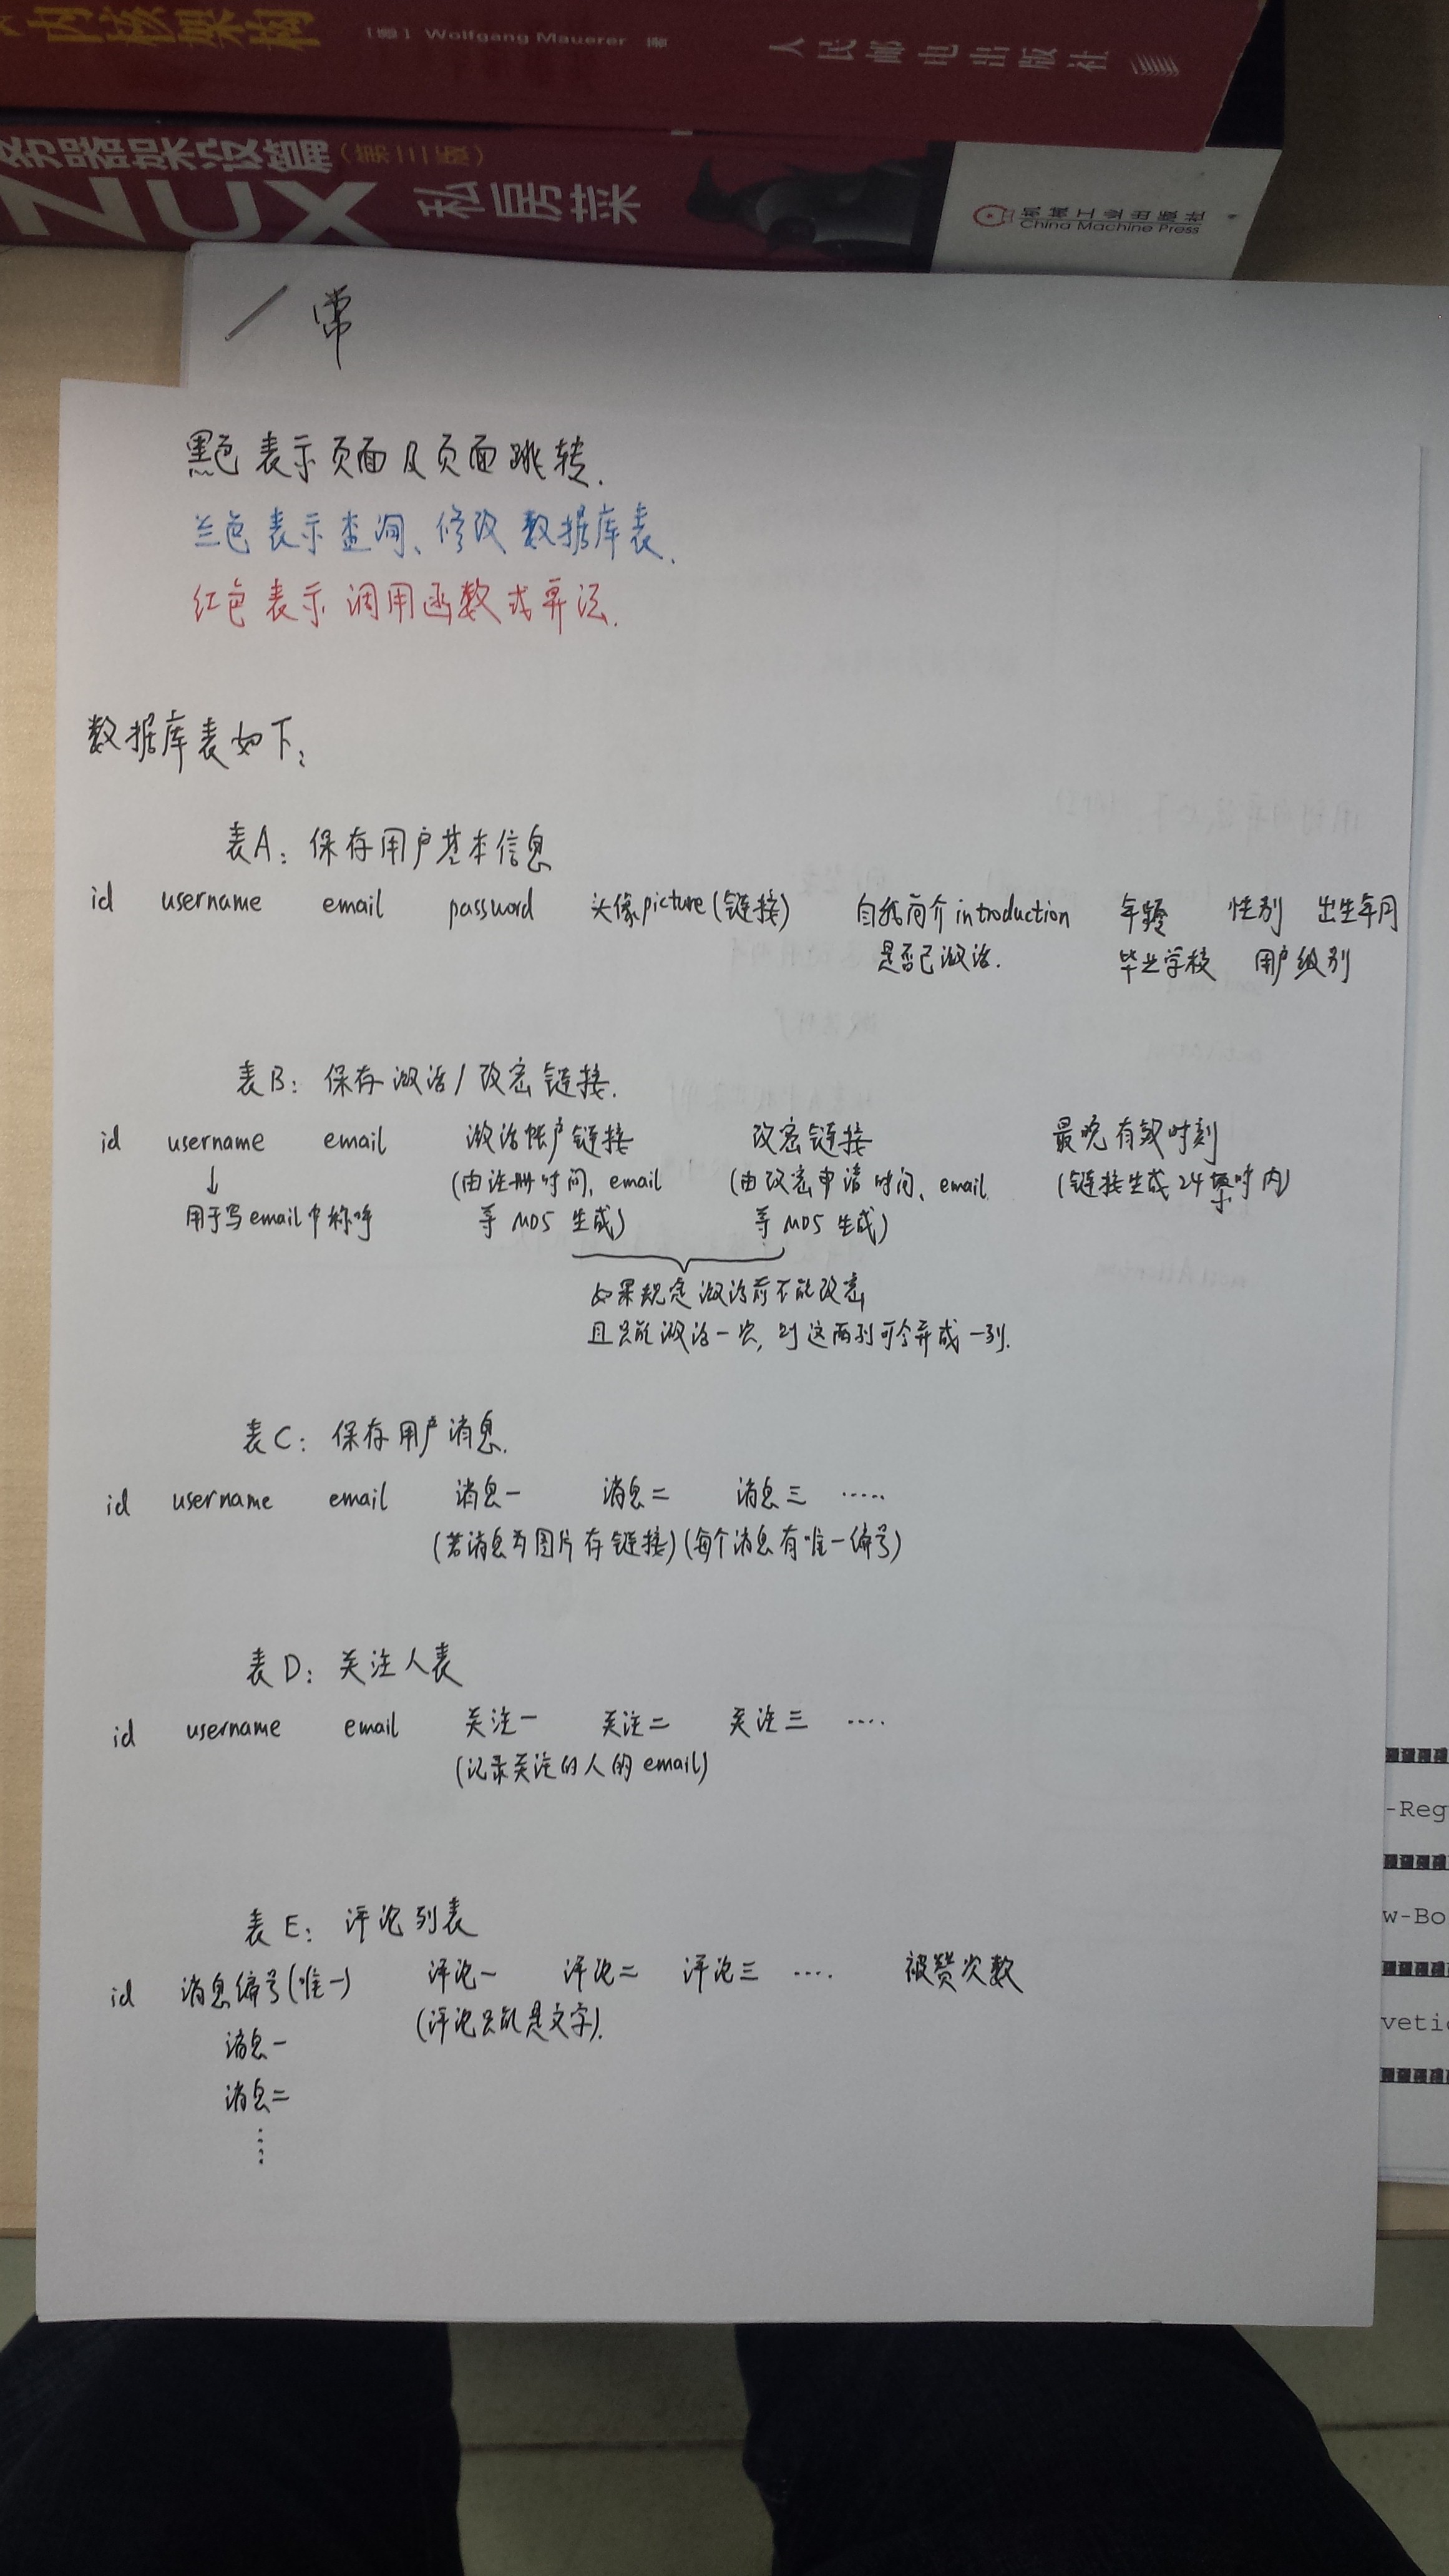 内核架构 〔德〕Wolfgang Mauerer 著 人民邮电出版社
务器架设篇（第三版）
私房菜
机械工业出版社
China Machine Press
常
黑色表示页面及页面跳转.
兰色表示查询、修改数据库表.
红色表示调用函数或算法.
数据库表如下:
表A: 保存用户基本信息
id username email password 头像picture(链接) 自我简介introduction 年龄 性别 出生年月
是否已激活. 毕业学校 用户级别
表B: 保存激活/改密链接.
id username email 激活帐户链接 改密链接 最晚有效时刻
↓ (由注册时间、email (由改密申请时间、email (链接生成24小时内)
用于写email中称呼 等MD5生成) 等MD5生成)
如果规定激活前不能改密
且只能激活一次, 则这两列可合并成一列.
表C: 保存用户消息.
id username email 消息一 消息二 消息三 ……
(若消息为图片存链接) (每个消息有唯一编号)
表D: 关注人表
id username email 关注一 关注二 关注三 ….
(记录关注的人的email)
表E: 评论列表
id 消息编号(唯一) 评论一 评论二 评论三 …. 被赞次数
消息一 (评论只能是文字).
消息二
⋮
-Reg
w-Bo
vetic